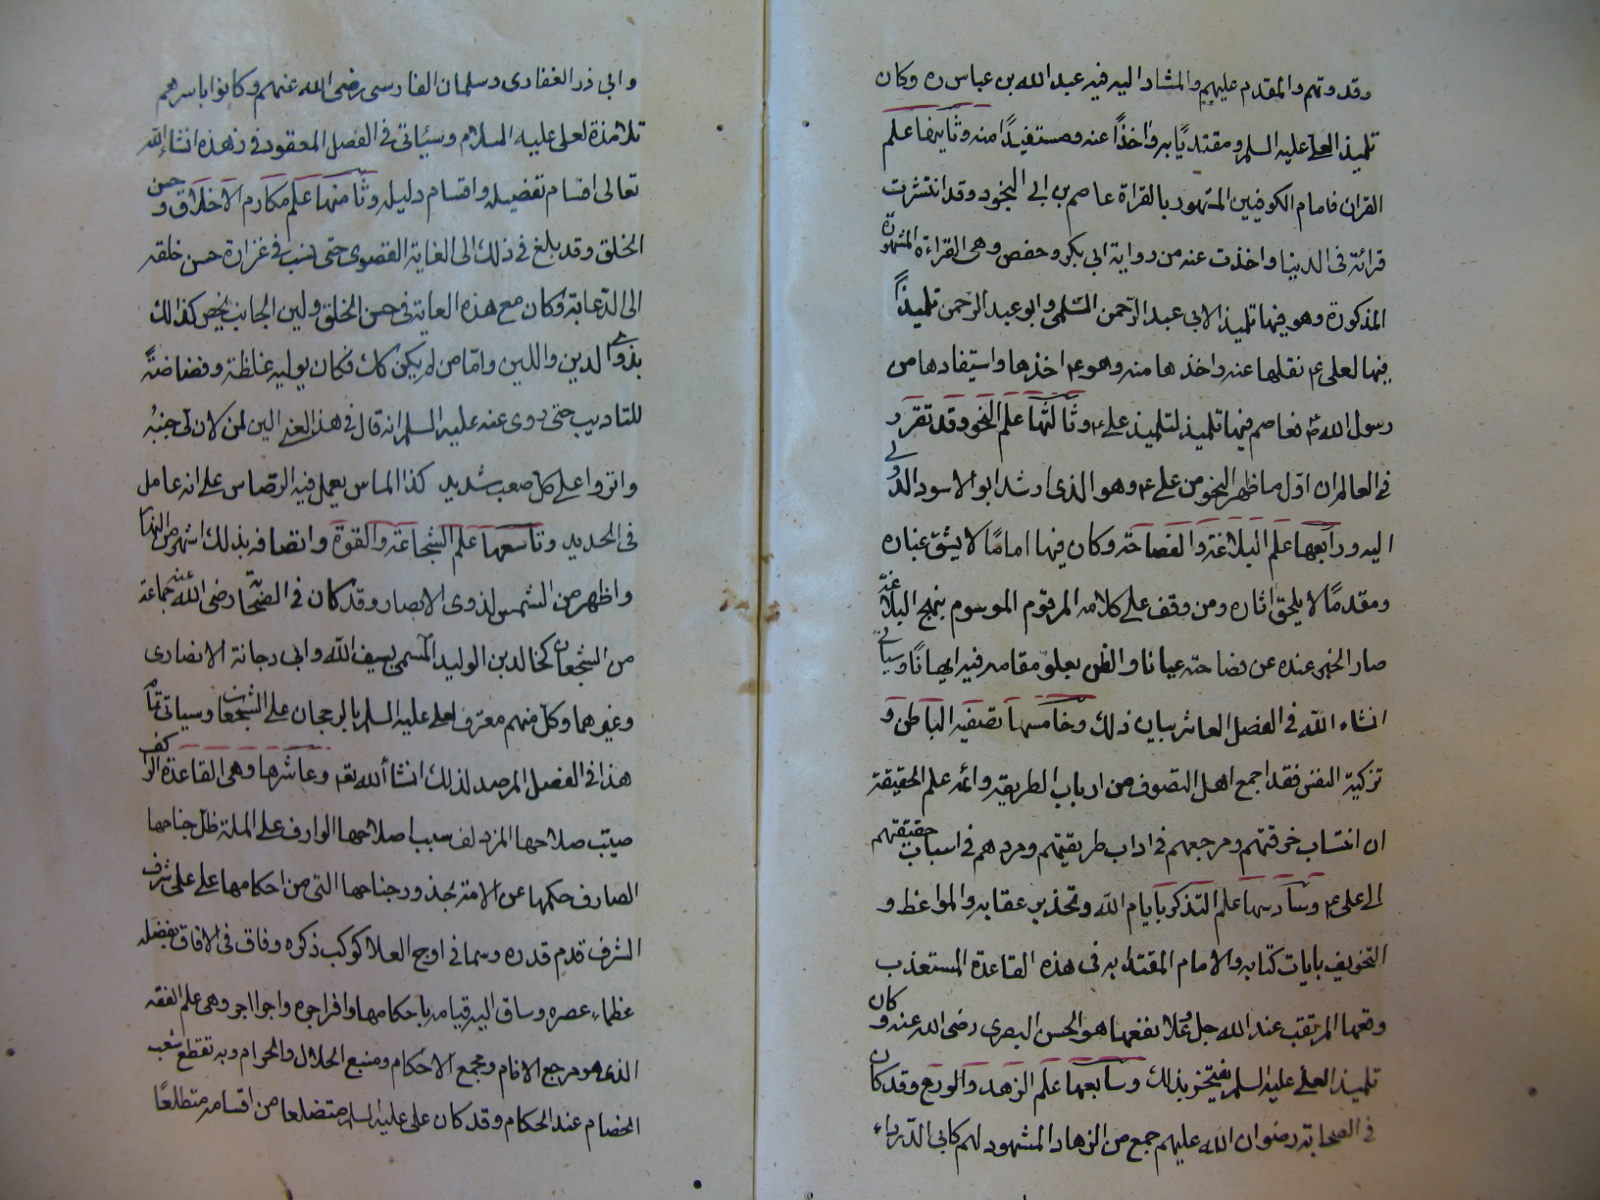 وقدوتهم والمقدم عليهم والمشار اليه فيه عبد الله بن عباس ره وكان
تلميذ العلى عليه السلم ومقتديًا به واخذًا عنه ومستفيدًا منه وثانيها علم
القران فامام الكوفيين المشهور بالقراة عاصم بن ابى النجود وقد انتشرت
قرائته فى الدنيا واخذت عنه من رواية ابى بكر وحفص وهى القراءة المشهورة
المذكورة وهو فيها تلميذ لابى عبد الرحمن السلمى وابو عبد الرحمن تلميذًا
فيها لعلى ع نقلها عنه واخذها منه وهو ع اخذها واستفادها من
رسول الله ص فعاصم فيها تلميذ لتلميذ على ع وثالثها علم النحو وقد تقرر
فى العالم ان اول ما ظهر النحو من على ع وهو الذى ارشد ابو الاسود الدولى
اليه ورابعها علم البلاغة والفصاحة وكان فيها امامًا لا يشق غباره
ومقدمًا لا يلحق اثاره ومن وقف على كلامه المرقوم الموسوم بنهج البلاغة
صار الخبر عنده عن فصاحته عيانا والظن بعلو مقامه فيه ايمانًا وسياتى
انشاء الله فى الفصل العاشر بيان ذلك وخامسها تصفية الباطن و
تزكية النفس فقد اجمع اهل التصوف من ارباب الطريقة وائمه علم الحقيقة
ان انتساب خرقتهم ومرجعهم فى اداب طريقتهم ومردهم فى اسباب حقيقتهم
الى على ع وسادسها علم التذكر بايام الله وتحذير عقابه والمواعظ و
التخويف بايات كتابه والامام المقتدا به فى هذه القاعدة المستعذب
وقعها المرتقب عند الله جل وعلا نفعها هو الحسن البصرى رضى الله عنه وكان
تلميذ العلى عليه السلم يفتخر بذلك وسابعها علم الزهد والورع وقد كان
فى الصحابة رضوان الله عليهم جمع من الزهاد المشهود لهم كابى الدرداء
وابى ذر الغفارى وسلمان الفارسى رضى الله عنهم وكانوا باسرهم
تلامذة لعلى عليه السلام وسيئاتى فى الفصل المعقود فى زهده انشاء الله
تعالى اقسام تفضيله واقسام دليله وثامنها علم مكارم الاخلاق وحسن
الخلق وقد بلغ فى ذلك الى الغاية القصوى حتى نسب فى غزارة حسن خلقه
الى الدعابة وكان مع هذه الغاية فى حسن الخلق ولين الجانب يخص كذلك
بذوى الدين واللين وامّا من لم يكن كذلك فكان يوليه غلظة وفضاضةً
للتاديب حتى روى عنه عليه السلم انه قال فى هذا المعنى الين لمن لان لى جنبهُ
وانزوا على كل صعب شديد كذا الماس يعمل فيه الرصاص على انه عامل
فى الحديد وتاسعها علم الشجاعة والقوة واتصافه بذلك اشهر من النهار
واظهر من الشمس لذوى الابصار وقد كان فى الصحابة رضى الله عنهم جماعة
من الشجعان كخالد بن الوليد المسمى بسيف الله وابى دجانة الانصارى
وغيرهما وكل منهم معترف لعلى عليه السلم بالرجحان على الشجعان وسياتى
هذا فى الفصل المرصد لذلك انشا ألله تع وعاشرها وهى القاعدة
صيّب صلاحها المزدلف سبب اصلاحها الوارف على الملة ظل جناحها
الصارف حكمها عن الامة جناحها التى من احكامها على على شرف
الشرف قدم قدره وسما فى اوج العلا كوكب ذكره وفاق فى الافاق بفضله
عظماء عصره وساق اليه قيامه باحكامها وافر اجره واجوا اجر وهى علم الفقه
الذى هو مرجع الانام ومجمع الاحكام ومنبع الحلال والحرام وبه تقطع شعب
الخصام عند الحكام وقد كان على عليه السلم متضلعا من اقسامه متطلعًا